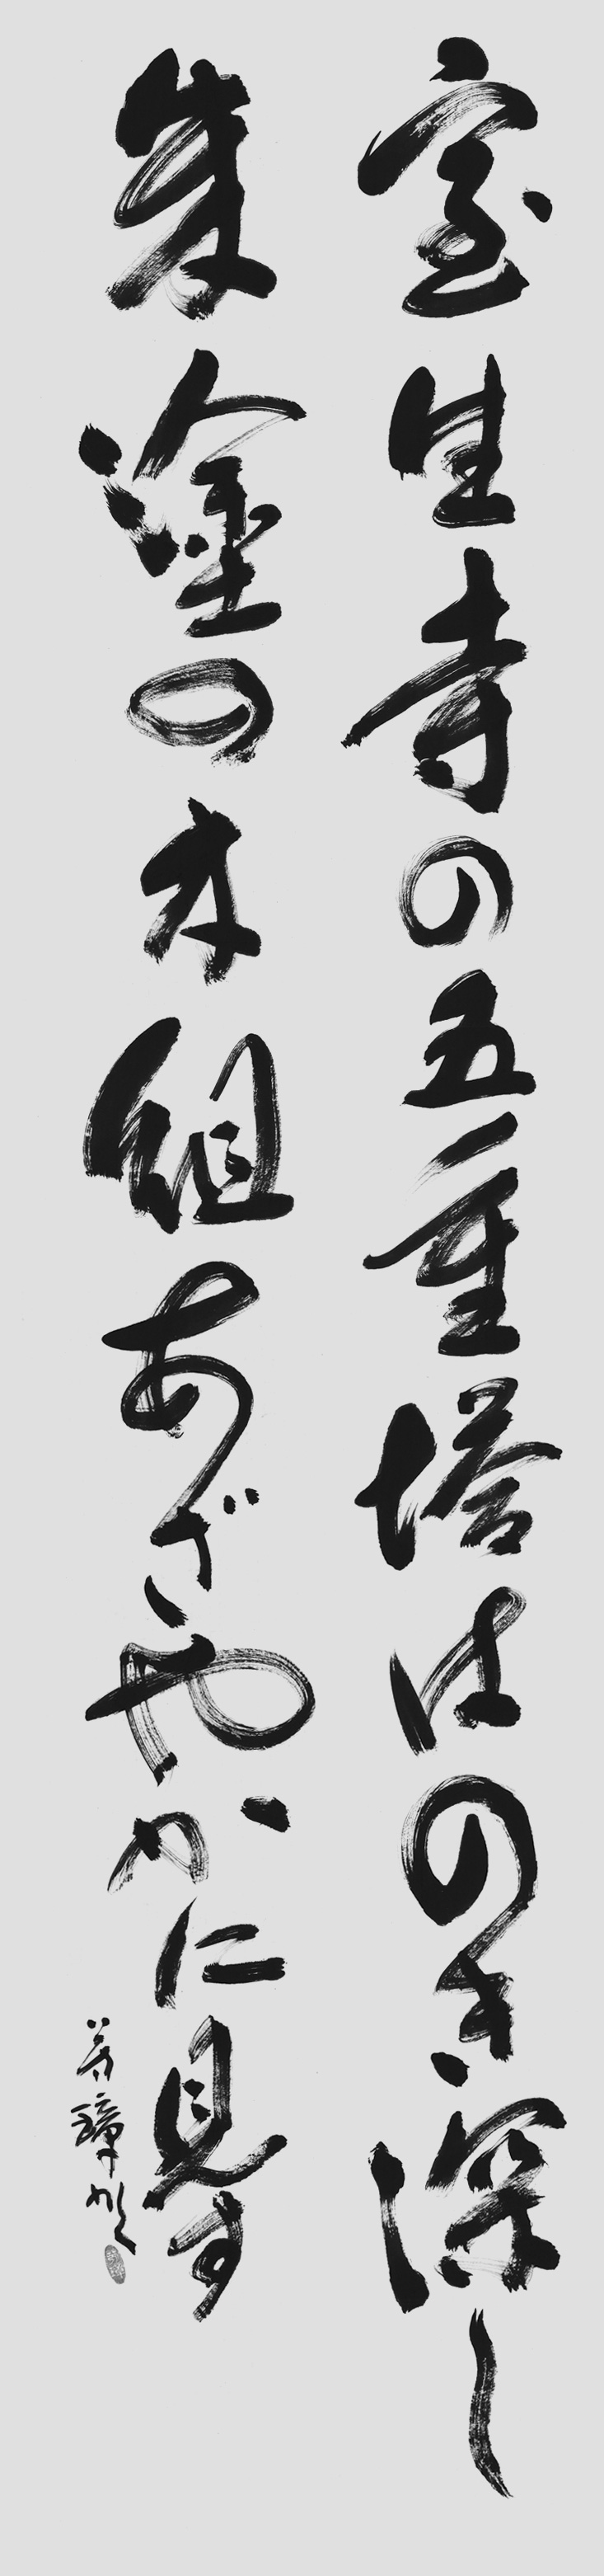 室生寺の五重塔はのき深し
朱塗の木組あざやかに見す